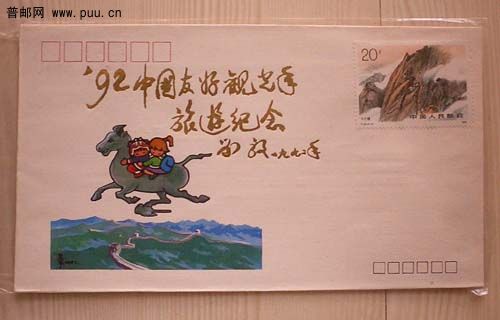 普邮网
www.puu.cn
'92中国友好观光年
旅遊纪念
一九九一年
20分
中国人民邮政